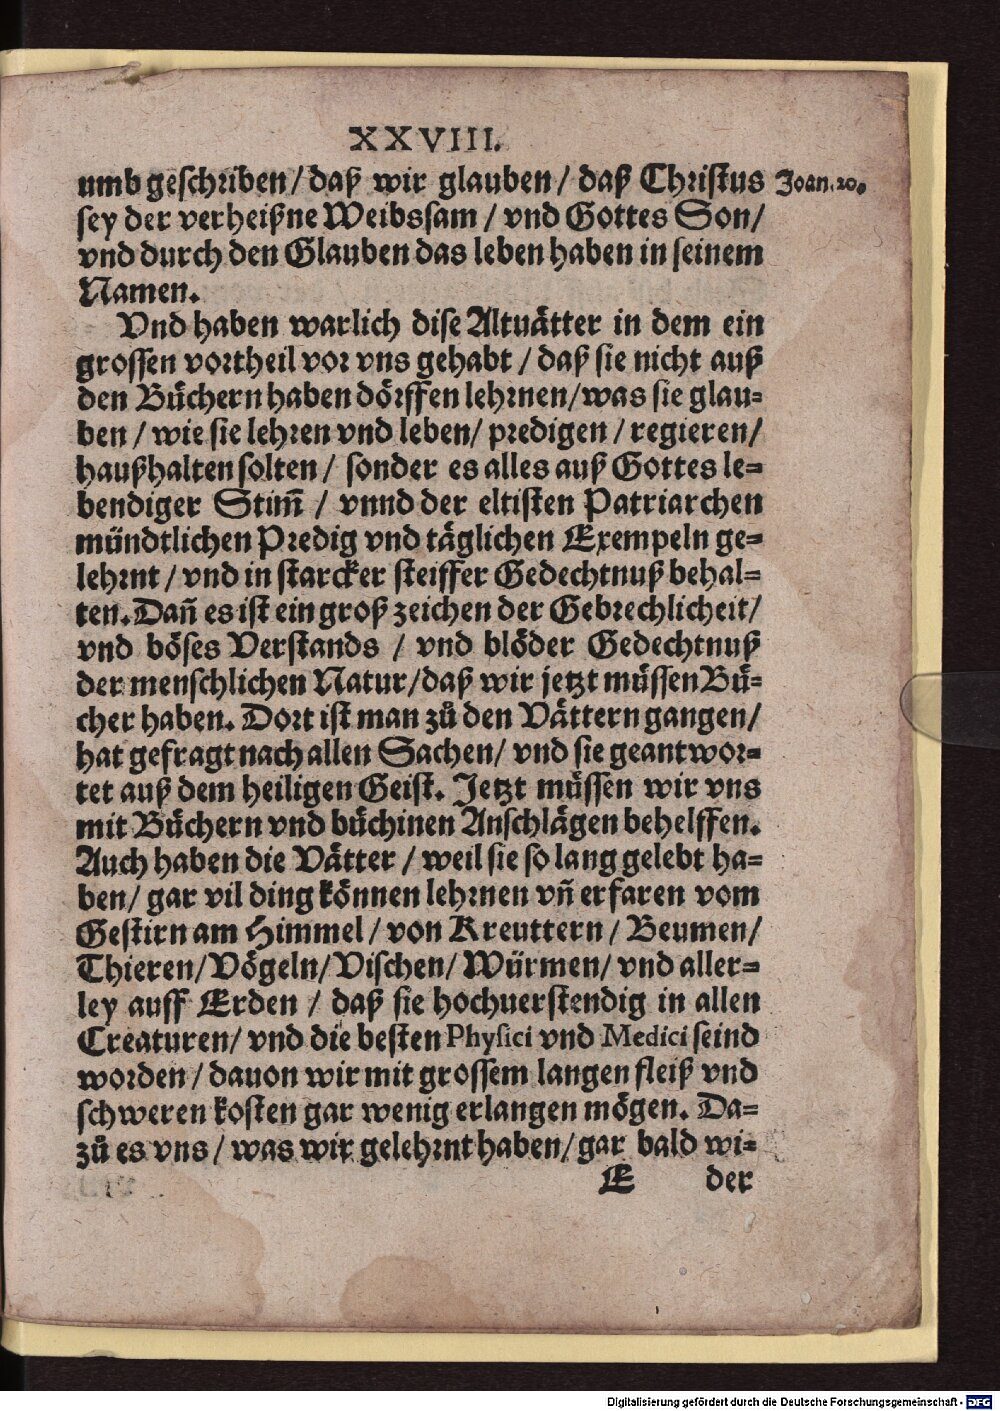 XXVIII.
umb geschriben / daß wir glauben / daß Christus Joan. 20.
sey der verheißne Weibssam / vnd Gottes Son /
vnd durch den Glauben das leben haben in seinem
Namen.
Vnd haben warlich dise Altuätter in dem ein
grossen vortheil vor vns gehabt / daß sie nicht auß
den Büchern haben dörffen lehrnen / was sie glau=
ben / wie sie lehren vnd leben / predigen / regieren /
haußhalten solten / sonder es alles auß Gottes le=
bendiger Stim̃ / vnnd der eltisten Patriarchen
mündtlichen Predig vnd täglichen Exempeln ge=
lehrnt / vnd in starcker steiffer Gedechtnuß behal=
ten. Dañ es ist ein groß zeichen der Gebrechlicheit /
vnd böses Verstands / vnd blöder Gedechtnuß
der menschlichen Natur / daß wir jetzt müssen Bü=
cher haben. Dort ist man zů den Vättern gangen /
hat gefragt nach allen Sachen / vnd sie geantwor=
tet auß dem heiligen Geist. Jetzt müssen wir vns
mit Büchern vnd büchinen Anschlägen behelffen.
Auch haben die Vätter / weil sie so lang gelebt ha=
ben / gar vil ding können lehrnen vñ erfaren vom
Gestirn am Himmel / von Kreuttern / Beumen /
Thieren / Vögeln / Vischen / Würmen / vnd aller=
ley auff Erden / daß sie hochuerstendig in allen
Creaturen / vnd die besten Physici vnd Medici seind
worden / dauon wir mit grossem langen fleiß vnd
schweren kosten gar wenig erlangen mögen. Da=
zů es vns / was wir gelehrnt haben / gar bald wi=
E der
Digitalisierung gefördert durch die Deutsche Forschungsgemeinschaft - DFG